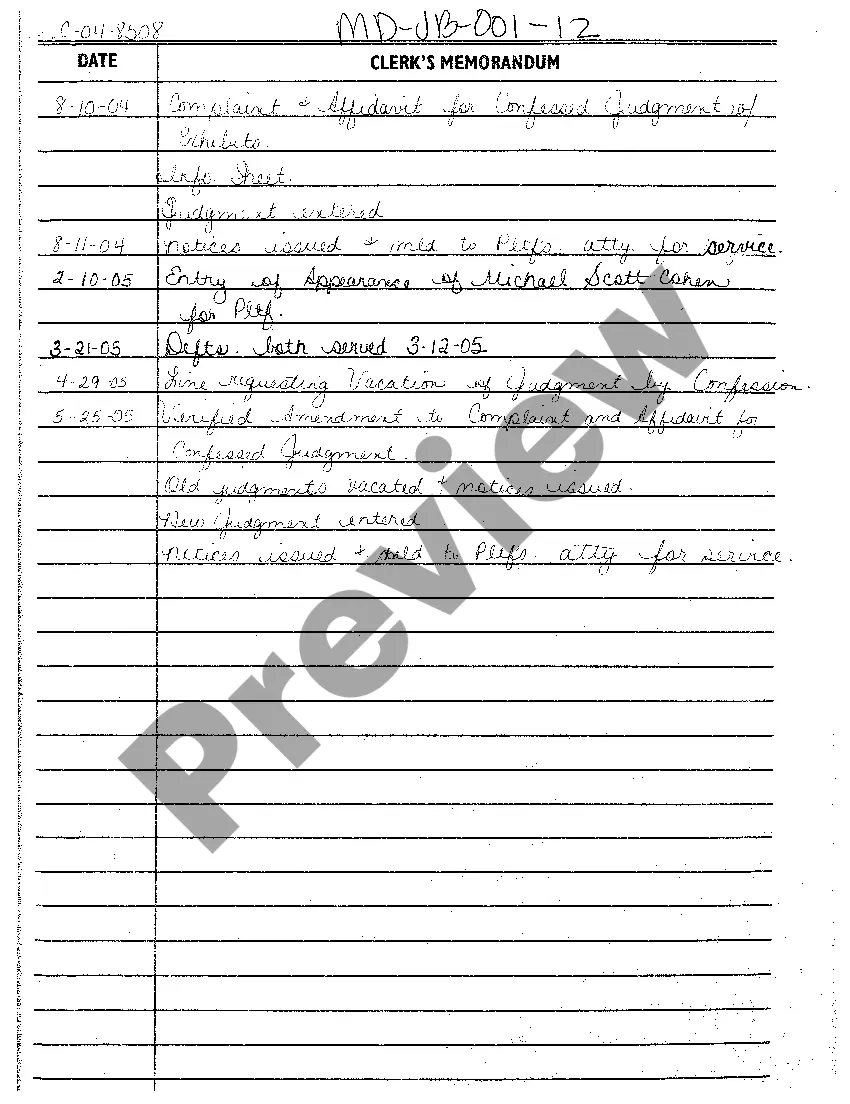 C-04-8508 MD-JB-001-12
DATE CLERK'S MEMORANDUM
8-10-04 Complaint & Affidavit for Confessed Judgment w/
Exhibits.
Info Sheet.
Judgment entered
8-11-04 notices issued & mld to Pltfs. atty for service.
2-10-05 Entry of Appearance of Michael Scott Cohen
for Pltf.
3-21-05 Defts. both served 3-12-05
4-29-05 Line requesting Vacation of Judgment by Confession.
5-25-05 Verified Amendment to Complaint and Affidavit for
Confessed Judgment.
Old judgments vacated & notices issued.
New Judgment entered
notices issued & mld to Pltfs. atty for service.
Preview